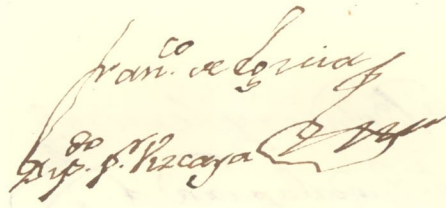 Franco. de Eguia
Dipdo. pr. Vizcaya